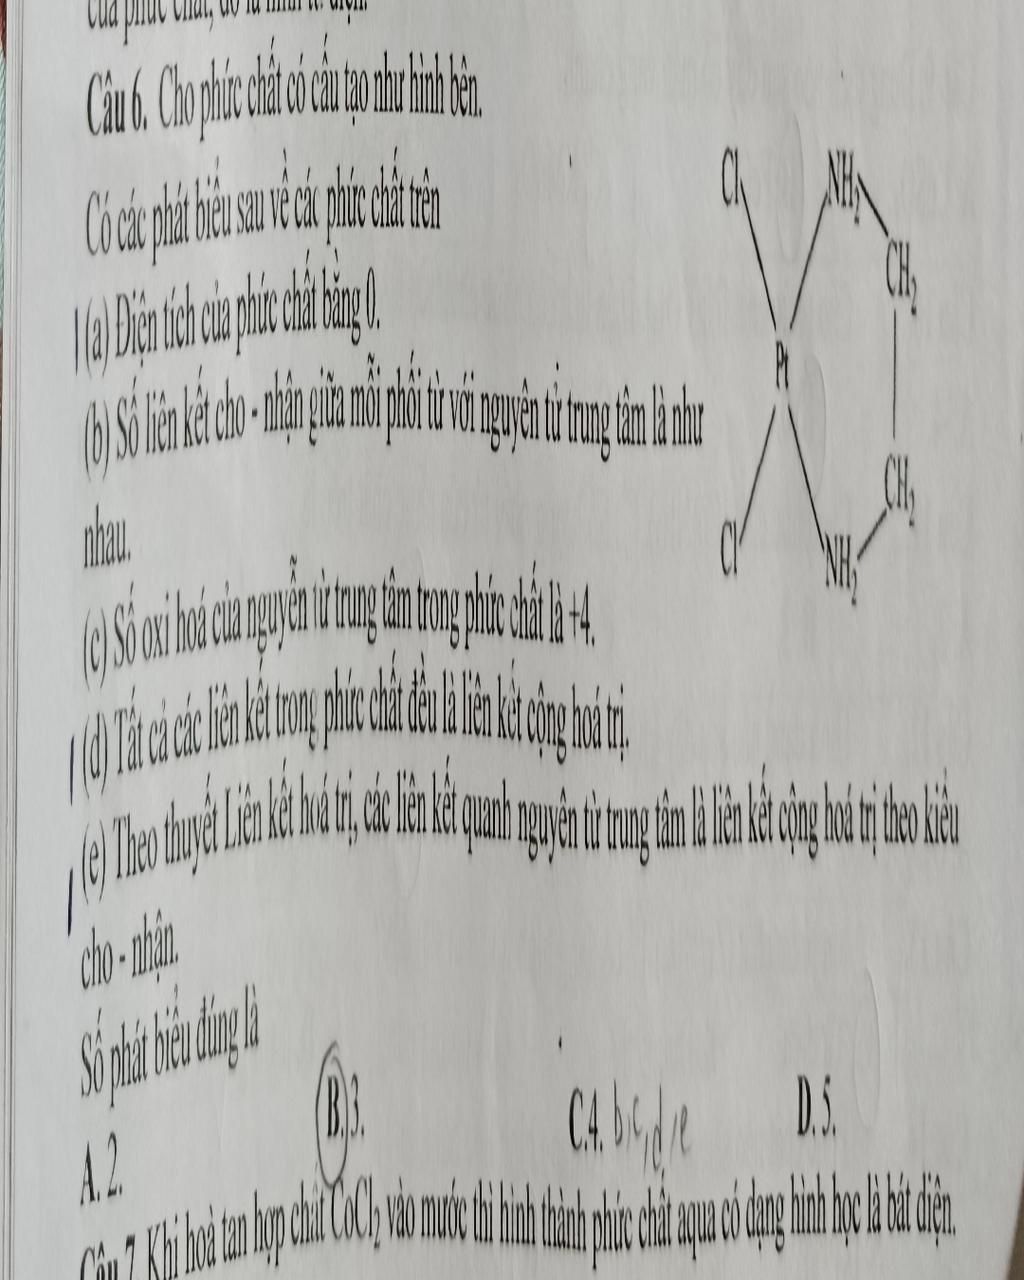 của phức chất, đó là hình tứ diện.
Câu 6. Cho phức chất có cấu tạo như hình bên.
Có các phát biểu sau về các phức chất trên
(a) Điện tích của phức chất bằng 0.
(b) Số liên kết cho - nhận giữa mỗi phối tử với nguyên tử trung tâm là như
nhau.
(c) Số oxi hoá của nguyễn tử trung tâm trong phức chất là +4.
(d) Tất cả các liên kết trong phức chất đều là liên kết cộng hoá trị.
(e) Theo thuyết Liên kết hoá trị, các liên kết quanh nguyên tử trung tâm là liên kết cộng hoá trị theo kiểu
cho - nhận.
Số phát biểu đúng là
A. 2.
B. 3.
C. 4. b,c,d,e
D. 5.
Câu 7. Khi hoà tan hợp chất CoCl₂ vào nước thì hình thành phức chất aqua có dạng hình học là bát diện.
Cl
NH₂
CH₂
Pt
CH₂
Cl
NH₂